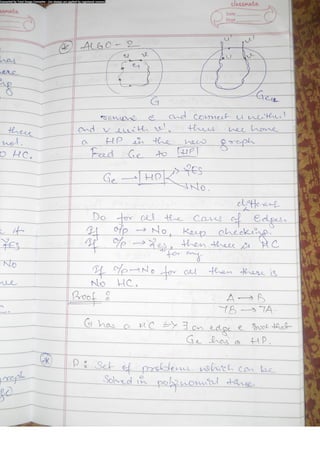 classmate
classmate
Date
Page
has
ALGO-2
u v
u' v'
e
G
Ge
remove e and connect u with u'
there
and v with v'. Thus we have
not.
a HP in the new graph
O HC.
Feed Ge to HP
Ge → HP → YES
→ No.
different
Do for all the cases of Edges.
If o/p → No, keep checking.
YES
If o/p → Yes, then there is HC
for any
No
If o/p → No for all then there is
No HC.
Proof :
A → B
¬B → ¬A
G has a HC ⇔ ∃ an edge e such that
Ge has a HP.
P: Set of problems which can be
graph
solved in polynomial time